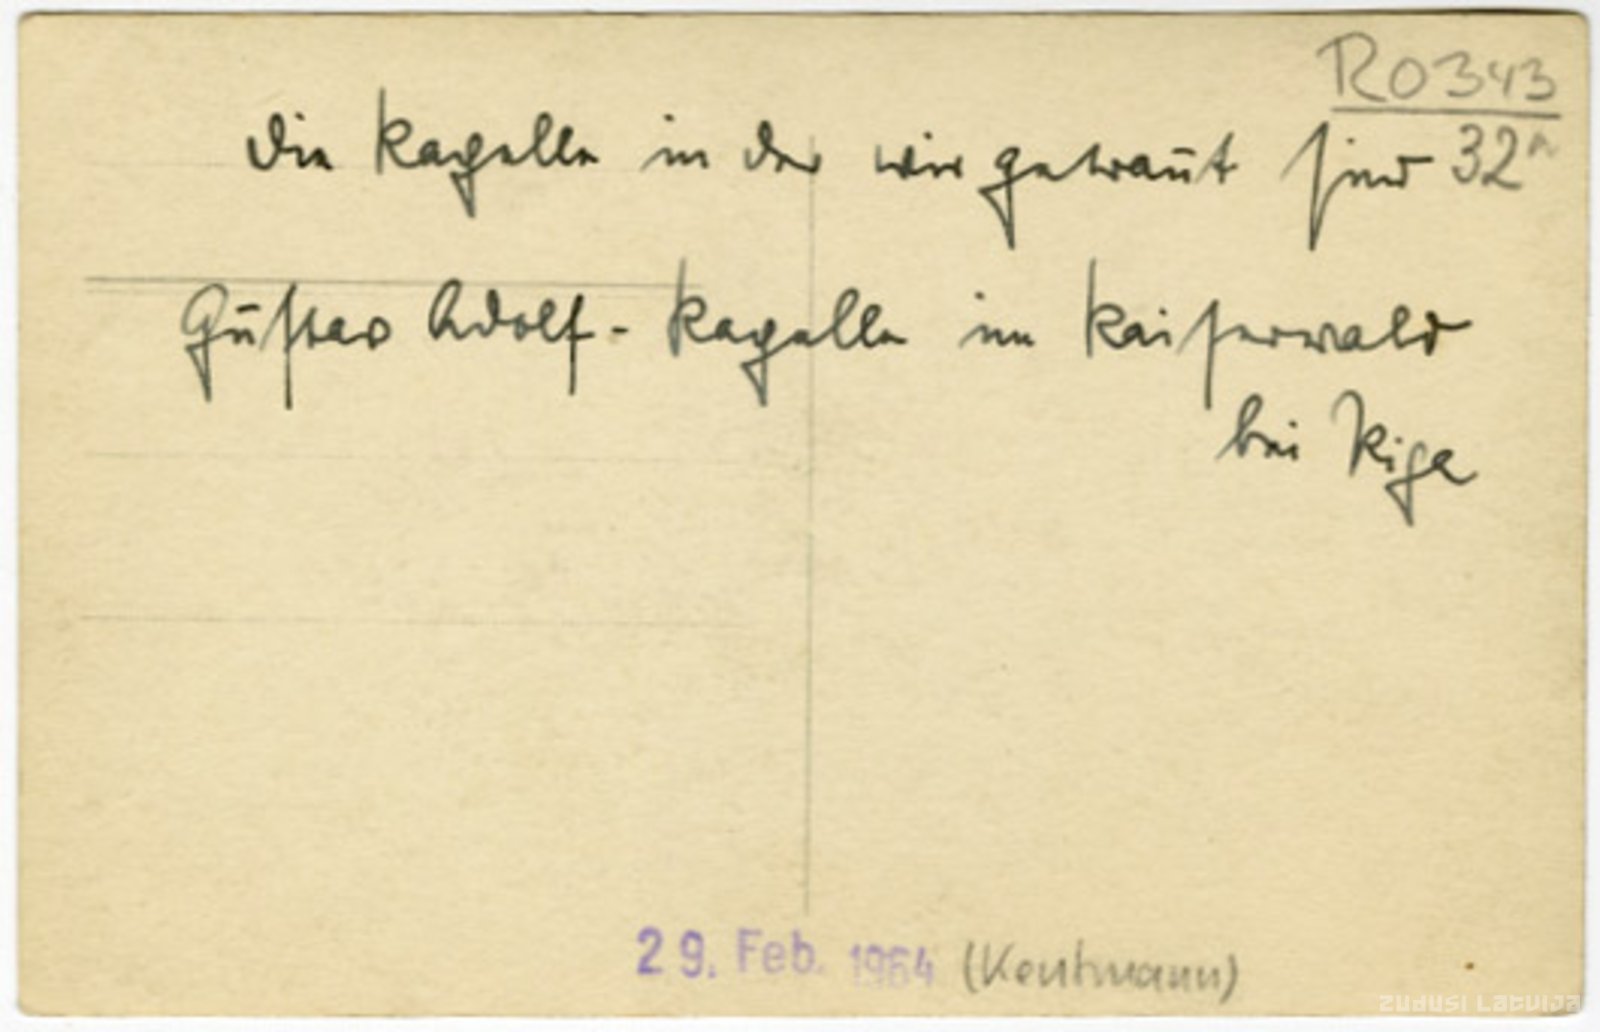 R0343
32a
die Kapelle in der wir getraut sind
Gustav Adolf-Kapelle im Kaiserwald
bei Riga
29. Feb. 1964 (Kentmann)
ZUDUSI LATVIJA